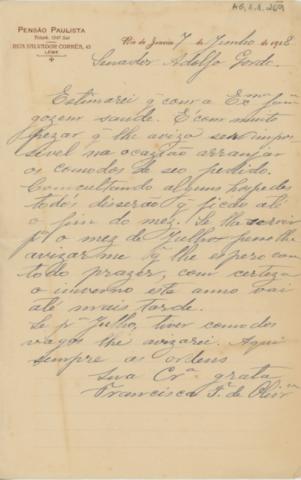 AG,1.1.269
PENSÃO PAULISTA
RUA SALVADOR CORRÊA, 43
LEME
Rio de Janeiro 7 de Junho de 1918
Senador Adolfo Gordo
Estimarei q̃ com a Exma fam
gozem saude. É com muito
pezar q̃ lhe aviza ser impos
sivel na ocazião arranjar
os comodos de seo pedido.
Comcultando alguns hospedes
todos diserão q̃ ficão até
o fim do mez. Se lhe servir
pa o mez de Julho, pesso lhe
avizar me q̃ lhe espero com
todo prazer, com certeza
o inverno este anno vai
até mais tarde.
Se pa Julho, tiver comodos
vagos lhe avizarei. Aqui
sempre as ordens
Sua Cra grata
Francisca F. de Olivra